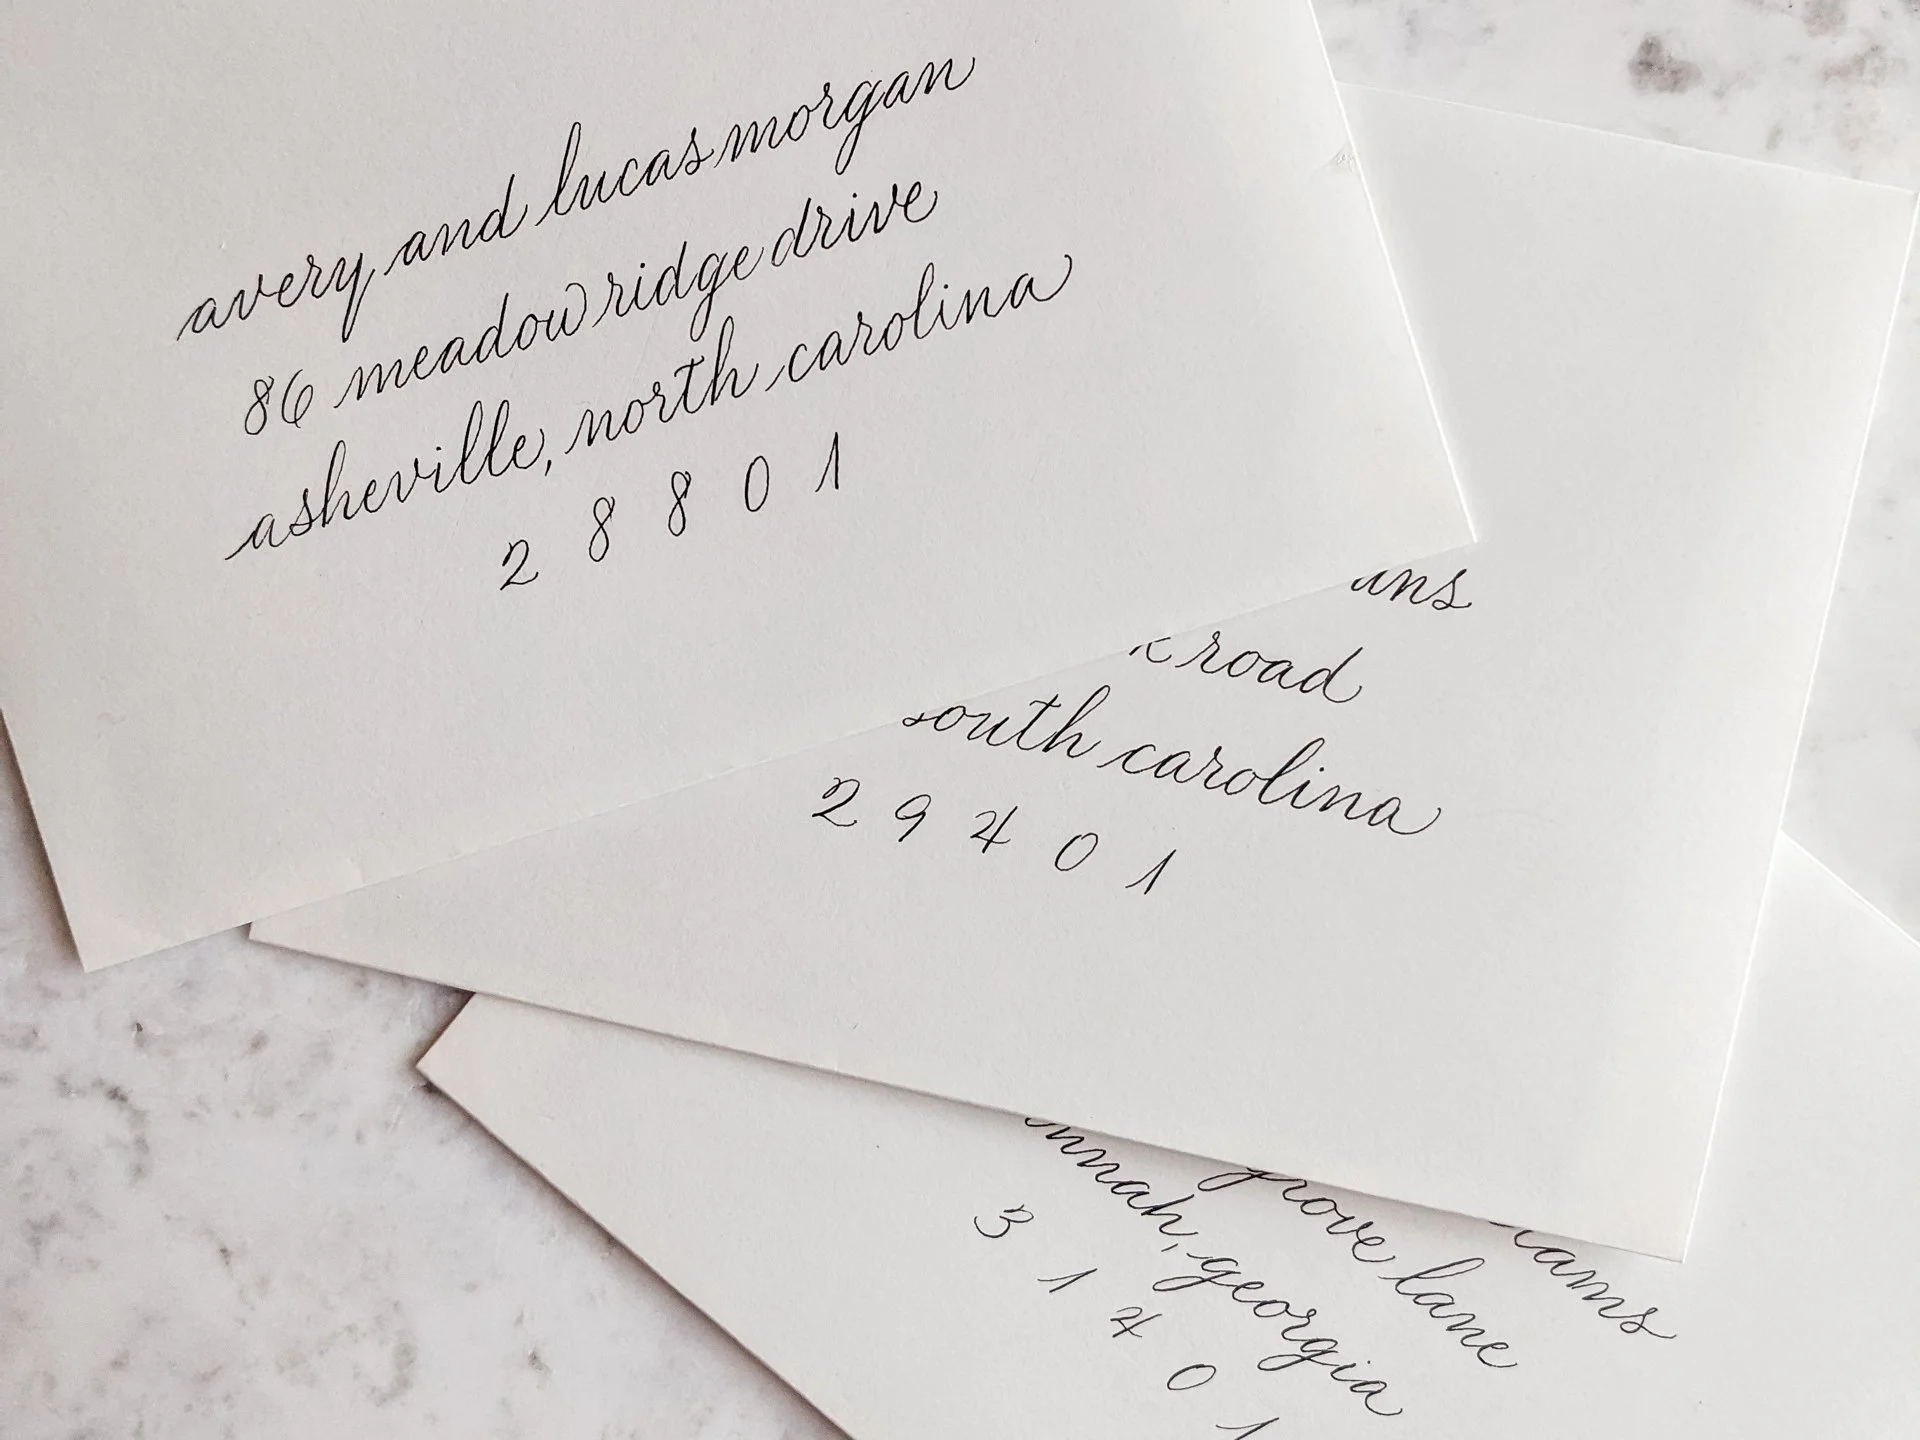 avery and lucas morgan
86 meadow ridge drive
asheville, north carolina
2 8 8 0 1
road
south carolina
2 9 4 0 1
grove lane
georgia
3 1 4 0 1